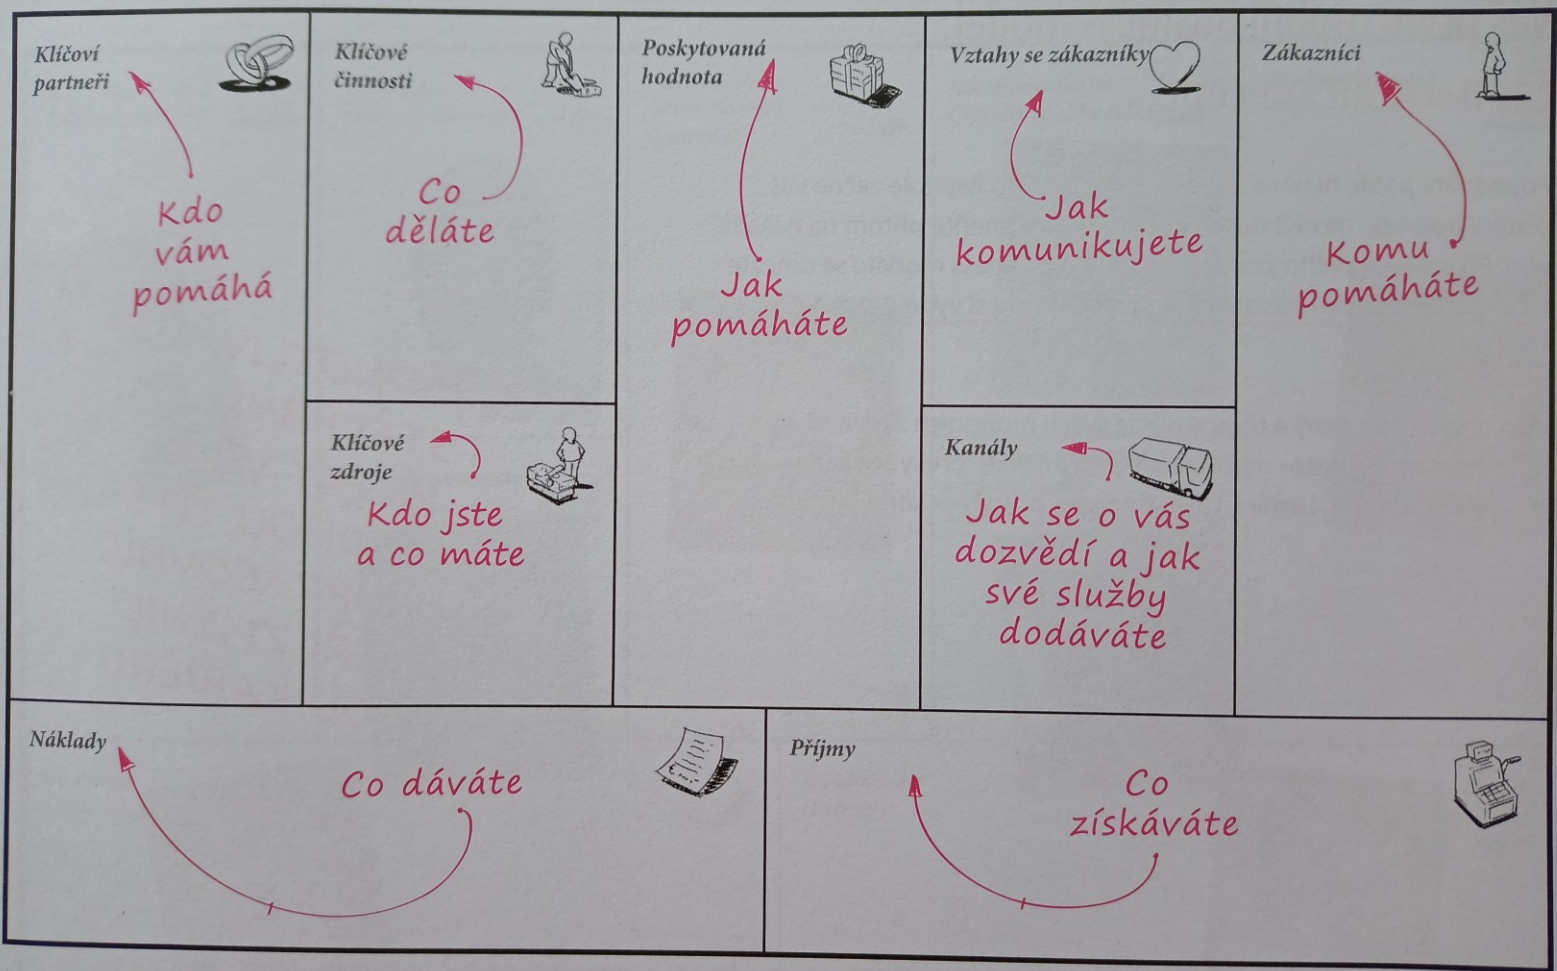 Klíčoví
partneři
Kdo
vám
pomáhá
Klíčové
činnosti
Co
děláte
Klíčové
zdroje
Kdo jste
a co máte
Poskytovaná
hodnota
Jak
pomáháte
Vztahy se zákazníky
Jak
komunikujete
Kanály
Jak se o vás
dozvědí a jak
své služby
dodáváte
Zákazníci
Komu
pomáháte
Náklady
Co dáváte
Příjmy
Co
získáváte